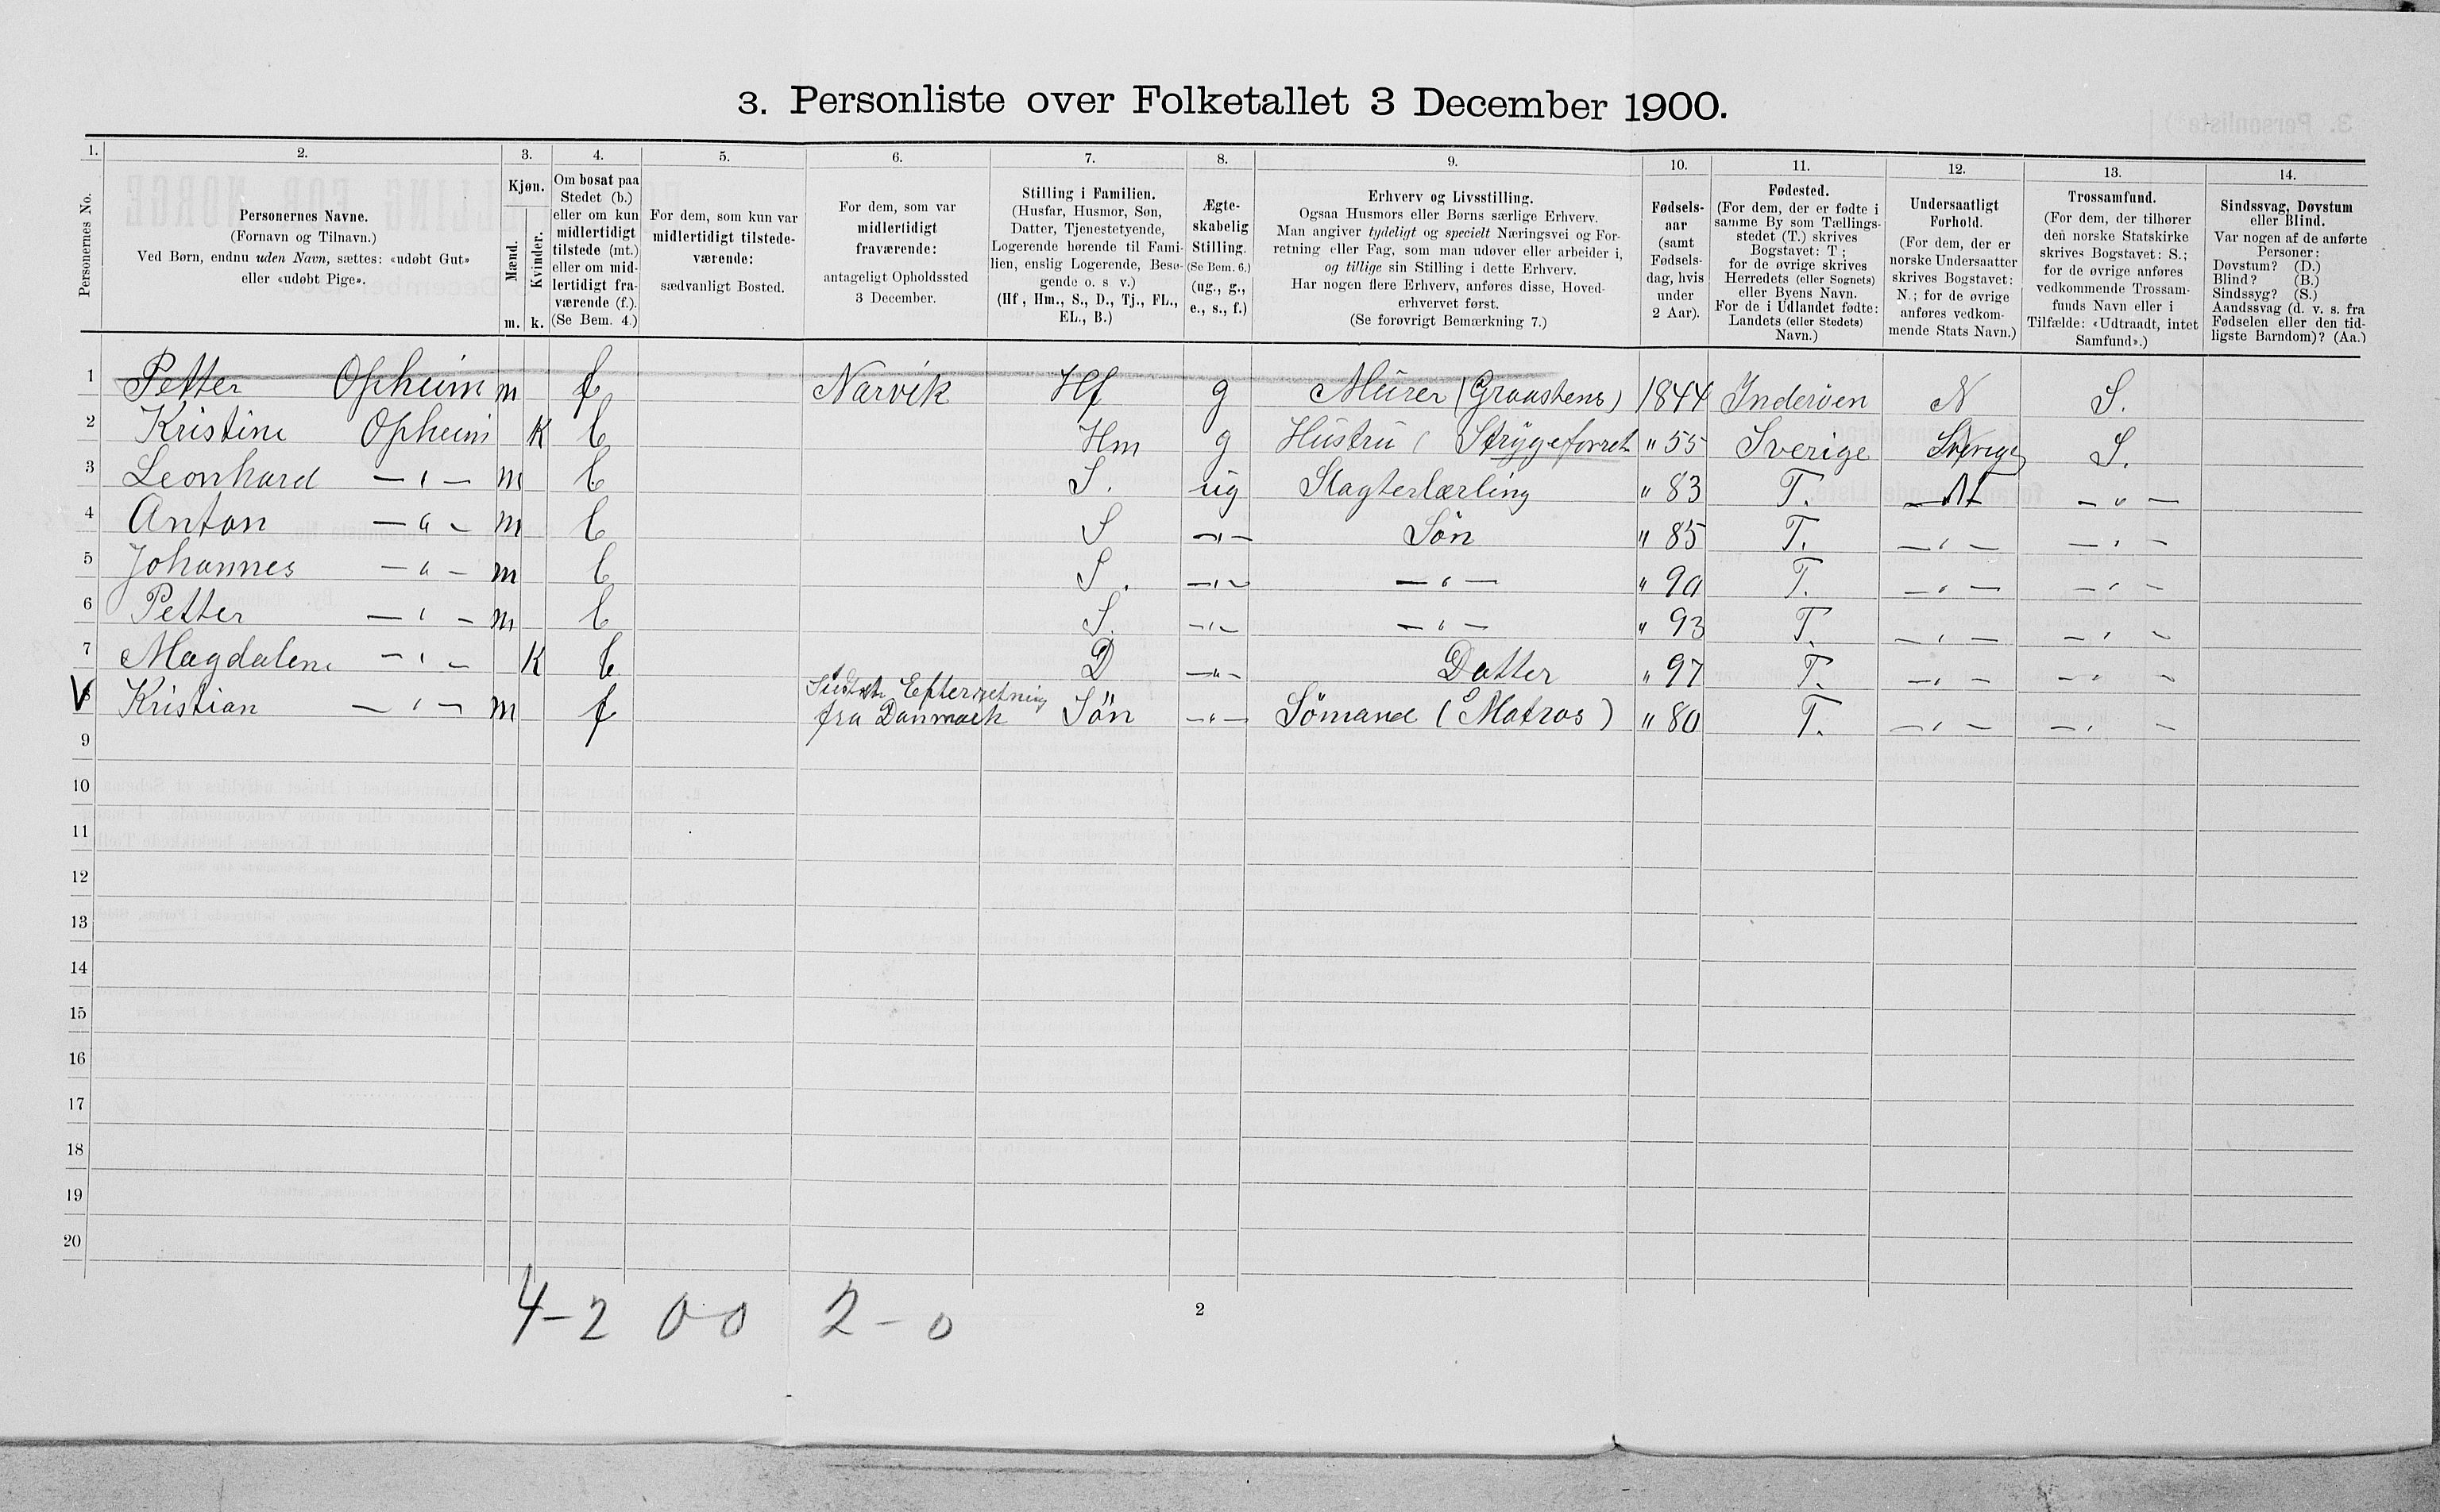 3. Personliste over Folketallet 3 December 1900.
1. 2. 3. 4. 5. 6. 7. 8. 9. 10. 11. 12. 13. 14.
Personernes No.
Personernes Navne.
(Fornavn og Tilnavn.)
Ved Børn, endnu uden Navn, sættes: «udøbt Gut»
eller «udøbt Pige».
Kjøn.
Mænd.
Kvinder.
m. k.
Om bosat paa
Stedet (b.)
eller om kun
midlertidigt
tilstede (mt.)
eller om mid-
lertidigt fra-
værende (f.).
(Se Bem. 4.)
For dem, som kun var
midlertidigt tilstede-
værende:
sædvanligt Bosted.
For dem, som var
midlertidigt
fraværende:
antageligt Opholdssted
3 December.
Stilling i Familien.
(Husfar, Husmor, Søn,
Datter, Tjenestetyende,
Logerende hørende til Fami-
lien, enslig Logerende, Besø-
gende o. s v.)
(Hf, Hm., S., D., Tj., FL.,
EL., B.)
Ægte-
skabelig
Stilling.
(Se Bem. 6.)
(ug., g.,
e., s., f.)
Erhverv og Livsstilling.
Ogsaa Husmors eller Børns særlige Erhverv.
Man angiver tydeligt og specielt Næringsvei og For-
retning eller Fag, som man udøver eller arbeider i,
og tillige sin Stilling i dette Erhverv.
Har nogen flere Erhverv, anføres disse, Hoved-
erhvervet først.
(Se forøvrigt Bemærkning 7.)
Fødsels-
aar
(samt
Fødsels-
dag, hvis
under
2 Aar).
Fødested.
(For dem, der er fødte i
samme By som Tællings-
stedet (T.) skrives
Bogstavet: T;
for de øvrige skrives
Herredets (eller Sognets)
eller Byens Navn.
For de i Udlandet fødte:
Landets (eller Stedets)
Navn.)
Undersaatligt
Forhold.
(For dem, der er
norske Undersaatter
skrives Bogstavet:
N.; for de øvrige
anføres vedkom-
mende Stats Navn.)
Trossamfund.
(For dem, der tilhører
den norske Statskirke
skrives Bogstavet: S.;
for de øvrige anføres
vedkommende Trossam-
funds Navn eller i
Tilfælde: «Udtraadt, intet
Samfund».)
Sindssvag, Døvstum
eller Blind.
Var nogen af de anførte
Personer:
Døvstum? (D.)
Blind? (B.)
Sindssyg? (S.)
Aandssvag (d. v. s. fra
Fødselen eller den tid-
ligste Barndom)? (Aa.)
1 Petter Opheim m f Narvik Hf g Murer (Graastens) 1844 Inderøen N S.
2 Kristine Opheim K b Hm g Hustru ( Strygeforret " 55 Sverige Sverige S.
3 Leonhard — " — m b S. ug Slagterlærling " 83 T. N — " —
4 Anton — " — m b S — " — Søn " 85 T. — " — — " —
5 Johannes — " — m b S. — " — — " — " 90 T. — " — — " —
6 Petter — " — m b S. — " — — " — " 93 T. — " — — " —
7 Magdalene — " — K b D — " — Datter " 97 T. — " — — " —
V 8 Kristian — " — m f Sidste Efterretning fra Danmark Søn — " — Sømand (Matros) " 80 T. — " — — " —
9
10
11
12
13
14
15
16
17
18
19
20
4-2 0 0 2 - 0
2